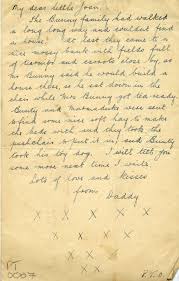 My dear little Joan.
The Bunny family had walked
a long long way and couldn't find
a house. At last they came to a
nice mossy bank with fields full
of turnips and carrots close by, so
Mr Bunny said he would build a
house there, so he sat down in the
chair while Mrs Bunny got tea ready.
Bunty and Marmaduke were sent
to find some nice soft hay to make
the beds with and they took the
pushchair to put it in, and Bunty
took his toy dog. I will tell you
some more next time I write.
Lots of love and kisses
from Daddy
x x x x
x x x
x x
x
P.T.O.
PT
0007